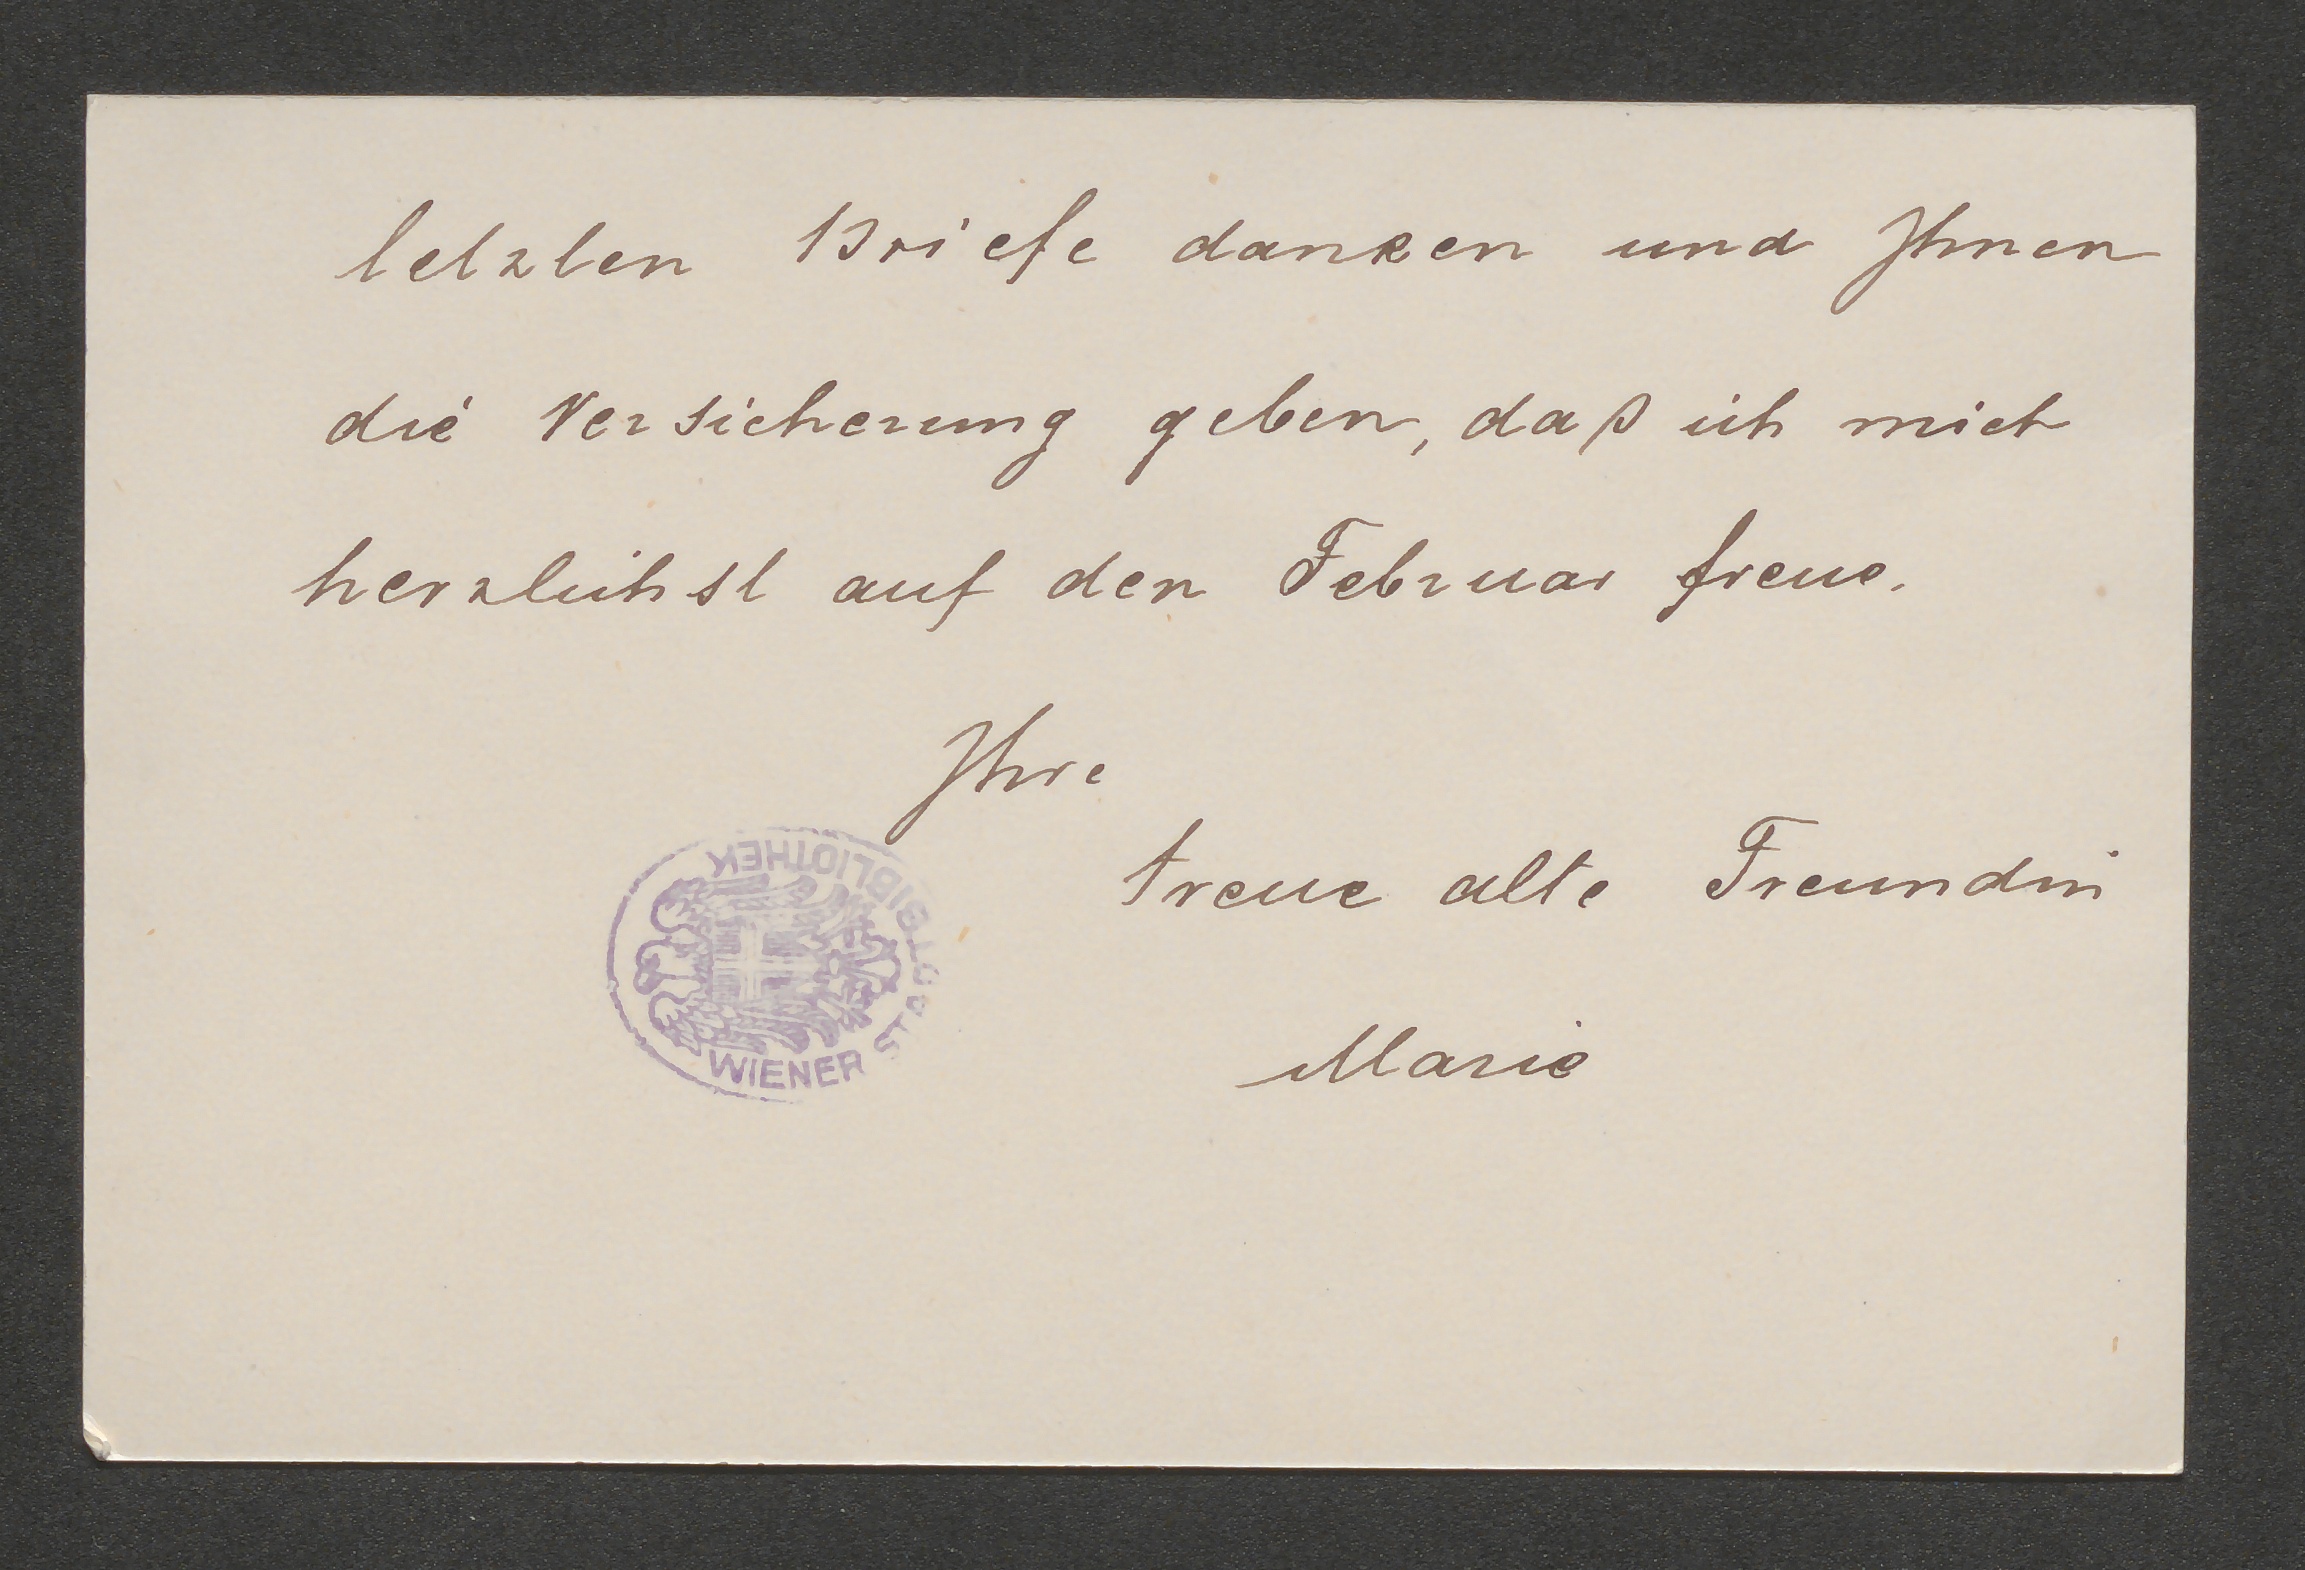 letzten Briefe danken und Ihnen
die Versicherung geben, daß ich mich
herzlichst auf den Februar freue.
Ihre
treue alte Freundin
Marie
WIENER STADTBIBLIOTHEK